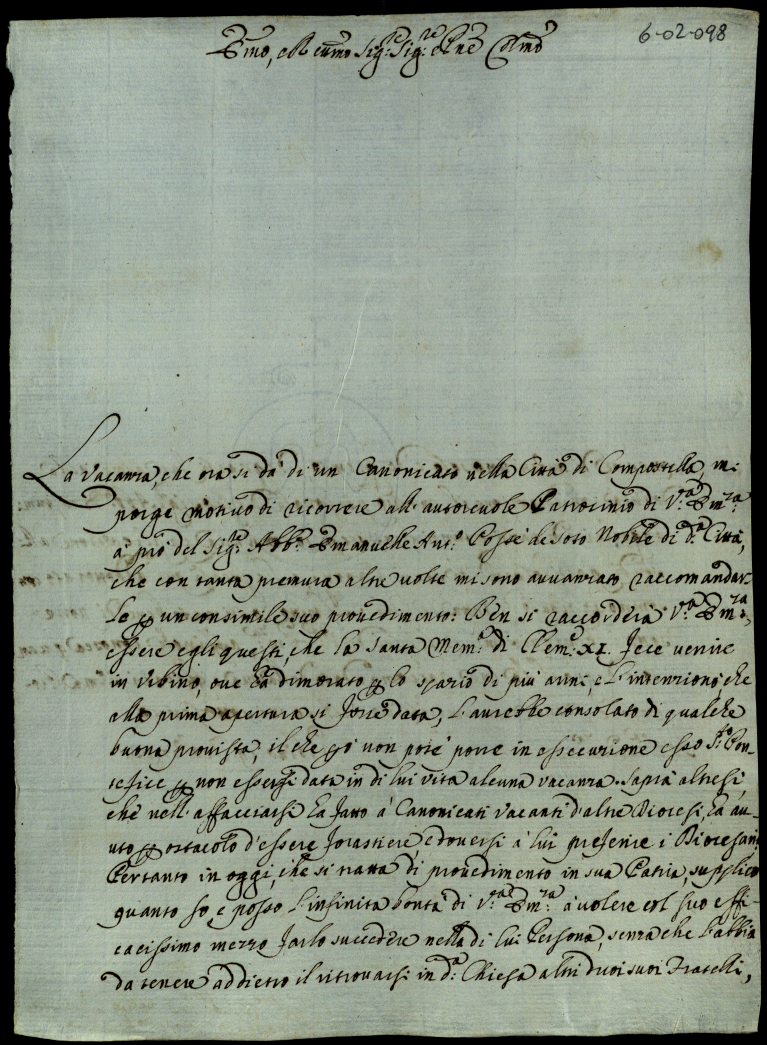 6-02-098
Emo, e Reumo Sig:re Sig:re e Pne Colmo
La vacanza, che ora si dà di un Canonicato nella Città di Compostella, mi
porge motivo di ricorrere all'autorevole Patrocinio di V:ra Em:za
à prò del Sig:r Abb:e Emanuelle Ant:o de Soto Nobile di d:a Città,
che con tanta premura altre volte mi sono avvanzato raccomandar-
lo p un consimile suo provedimento: Ben si raccorderà V:ra Em:za,
essere egli questi, che la santa Mem:a di Clem:e XI. fece venire
in Urbino, ove hà dimorato p lo spazio di più anni, e l'intenzione, che
alla prima apertura si fosse data, l'aurebbe consolato di qualche
buona provista, il che però non potè porre in essecuzione esso S:to Pon-
tefice p non essersi data in di lui vita alcuna vacanza. Saprà altresì
che nell'affacciarsi hà fatto à Canonicati vacanti d'altre Diocesi, hà au-
uto p ostacolo d'essere forastiere, e doversi à lui preferire i Diocesani
Pertanto in oggi, che si tratta di provedimento in sua Patria, supplico
quanto so, e posso l'infinita bontà di V:ra Em:za à volere col suo effi-
cacissimo mezzo farlo succedere nella di lui Persona, senza che l'abbia
da tenere addietro il ritrovarsi in d:a Chiesa altri duoi suoi Fratelli,